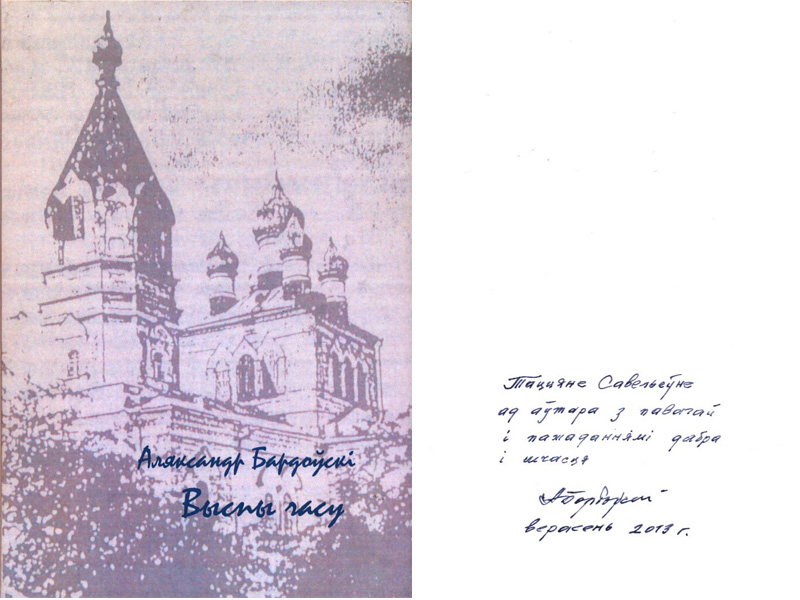 Аляксандр Бардоўскі
Выспы часу
Тацияне Савельеўне
ад аўтара з павагай
і пажаданнямі дабра
і шчасця
верасень 2013 г.